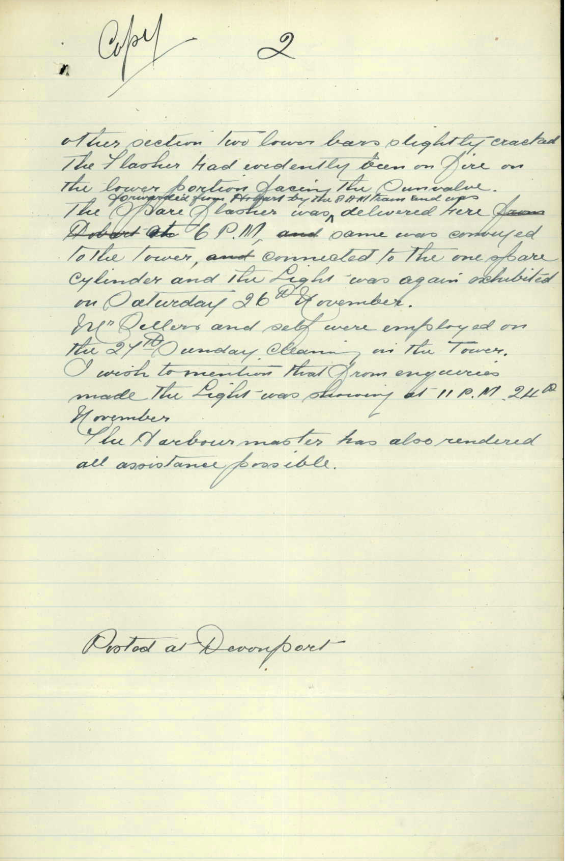 Copy
2
other section two lower bars slightly cracked
The Flasher had evidently been on fire on
the lower portion facing the Sunvalve.
forwarded from Hobart by the 8 AM train and was
The Spare Flasher was, delivered here from
Hobart at 6 P.M, and same was conveyed
to the Tower, and connected to the one spare
cylinder and the Light was again exhibited
on Saturday 26th November.
Mr Sellers and self were employed on
the 27th Sunday cleaning in the Tower.
I wish to mention that from enquiries
made the Light was showing at 11 P.M. 24th
November
The Harbourmaster has also rendered
all assistance possible.
Posted at Devonport